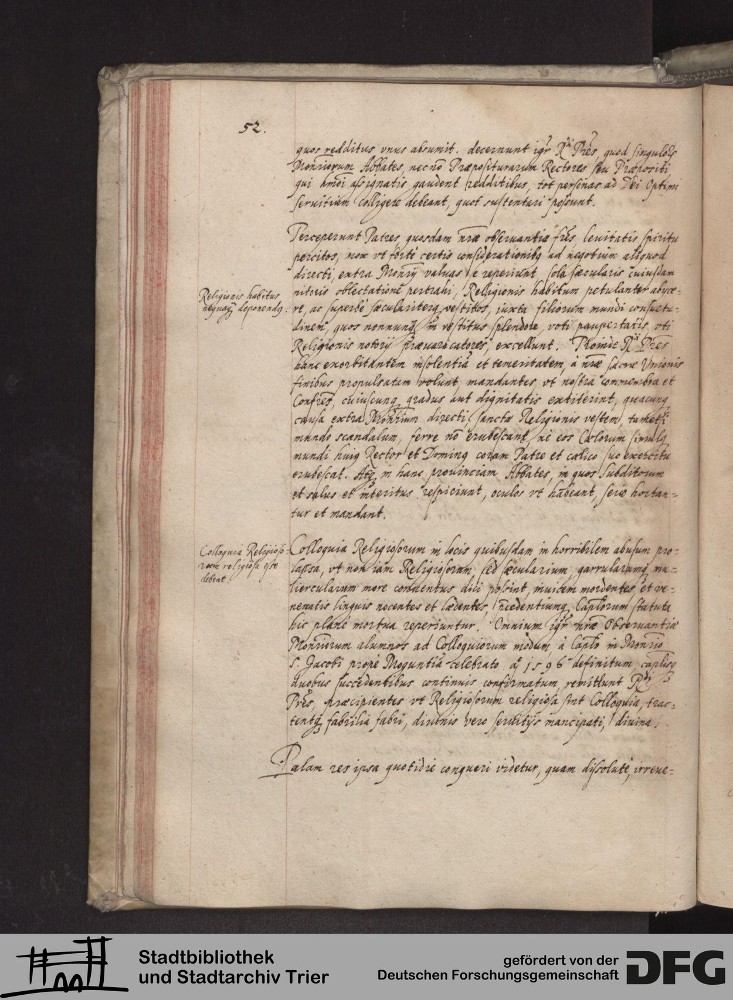 52.
quos redditus vnus absumit. decernunt igr̃ R.di Pr̃es, quod singulors
Monriorum Abbates, necnõ Præpositurarum Rectores seu Præpositi
qui assignatis gaudent redditibus, tot personas ad Dei Optimi
seruitium colligere debeant, quot sustentari possunt.
Perceperunt Patres, quosdam nr̃æ obseruantiæ fr̃es, leuitatis spiritu
percitos, non vt forte certis considerationibs ad negotium aliquod
directi, extra Monrij valuas se reperiunt sola sæcularis cuiusdam
nitoris oblectatione pertrahi, Religionis habitum petulanter abijce-
Religionis habitus
nequaq̃ deponends.
re, ac superbe sæculariterq vestitos, iuxta filiorum mundi consuetu-
dinem, quos nonnunq̃ in vestitus splendore voti paupertatis, vti
Religionis notorij præuaricatores, excellunt. Proinde R.di Pr̃es
hanc exorbitantem insolentiã et temeritatem, à nr̃æ sacræ Vnionis
finibus propulsatam volunt, mandantes, vt nostra commembra et
Confr̃es, cuiuscunq gradus aut dignitatis extiterint, quacunq
causa extra Monrium directi sanctæ Religionis vestem,
mundo scandalum, ferre nõ erubescant, ne eos Cœlorum simulq
mundi huis Rector et Domins coram Patre et cœlico suo exercitu
erubescat. Atq in hanc prouinciam Abbates, in quos Subditorum
et salus et interitus respiciunt, oculos vt habeant, serio hortan-
tur et mandant.
Colloquia Religioso-
rum religiosa esse
debent.
Colloquia Religiosorum in locis quibusdam in horribilem abusum pro-
lapsa, vt non iam Religiosorum, sed sæcularium, garrulariumq mu-
liercularum more conuentus dici possint, inuicem mordentes et ve-
nenatis linguis nocentes et lædentes, Capl̃orum statuta
hic plane mortua reperiuntur. Omnium igr̃ nr̃æ Obseruantiæ
Monriorum alumnos ad Colloquiorum modum, à Caplo in Monrio
S. Jacobi prope Moguntiã celebrato aõ 1596 definitum, caplisq
duobus succedentibus continuis confirmatum, remittunt R.di
Pr̃es, præcipientes vt Religiosorum religiosa sint Colloquia, trac-
tentq fabrilia fabri, diuinis vero seruitijs mancipati, diuina.
Palam res ipsa quotidie conqueri videtur, quam dissolute, irreue-
Stadtbibliothek
und Stadtarchiv Trier
gefördert von der
Deutschen Forschungsgemeinschaft
DFG